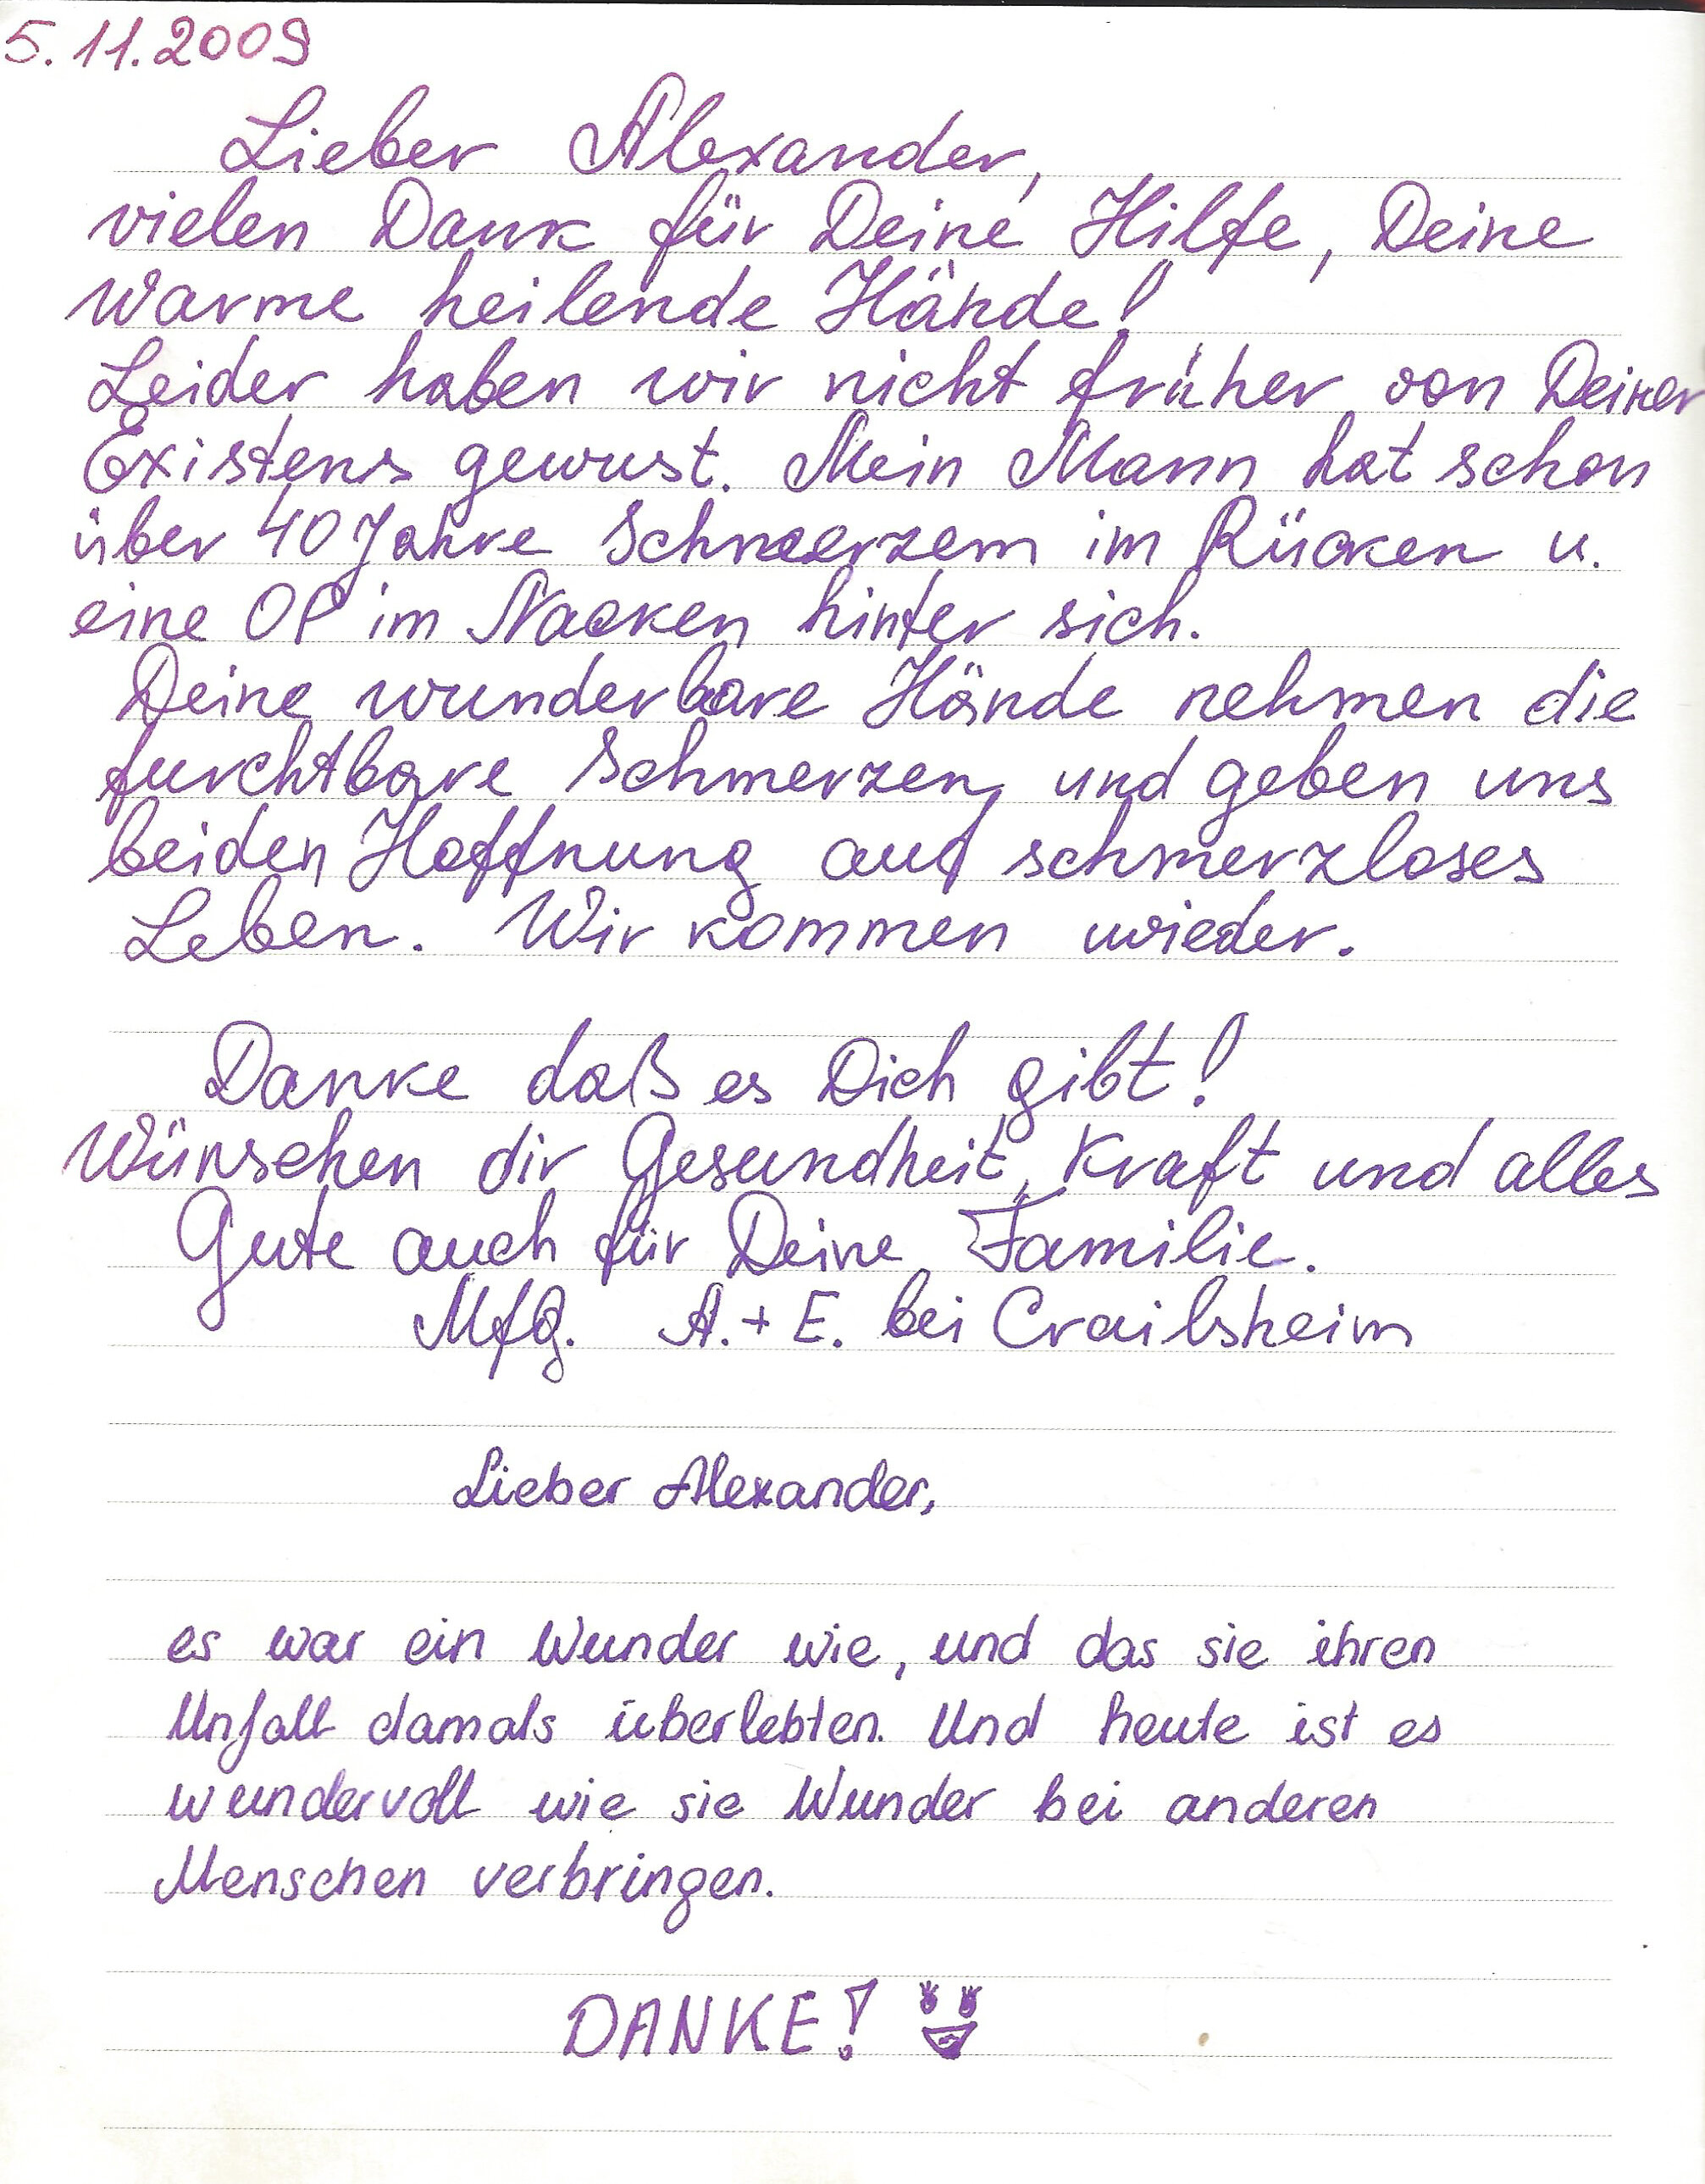 5.11.2009
Lieber Alexander,
vielen Dank für Deine Hilfe, Deine
warme heilende Hände!
Leider haben wir nicht früher von Deiner
Existens gewust. Mein Mann hat schon
über 40 Jahre Schmerzem im Rücken u.
eine OP im Nacken hinter sich.
Deine wunderbare Hände nehmen die
furchtbare Schmerzen, und geben uns
beiden Hoffnung auf schmerzloses
Leben. Wir kommen wieder.
Danke daß es Dich gibt!
Wünschen dir Gesundheit, Kraft und alles
Gute auch für Deine Familie.
Mfg. A. + E. bei Crailsheim
Lieber Alexander,
es war ein Wunder wie, und das sie ihren
Unfall damals überlebten. Und heute ist es
wundervoll wie sie Wunder bei anderen
Menschen verbringen.
DANKE!